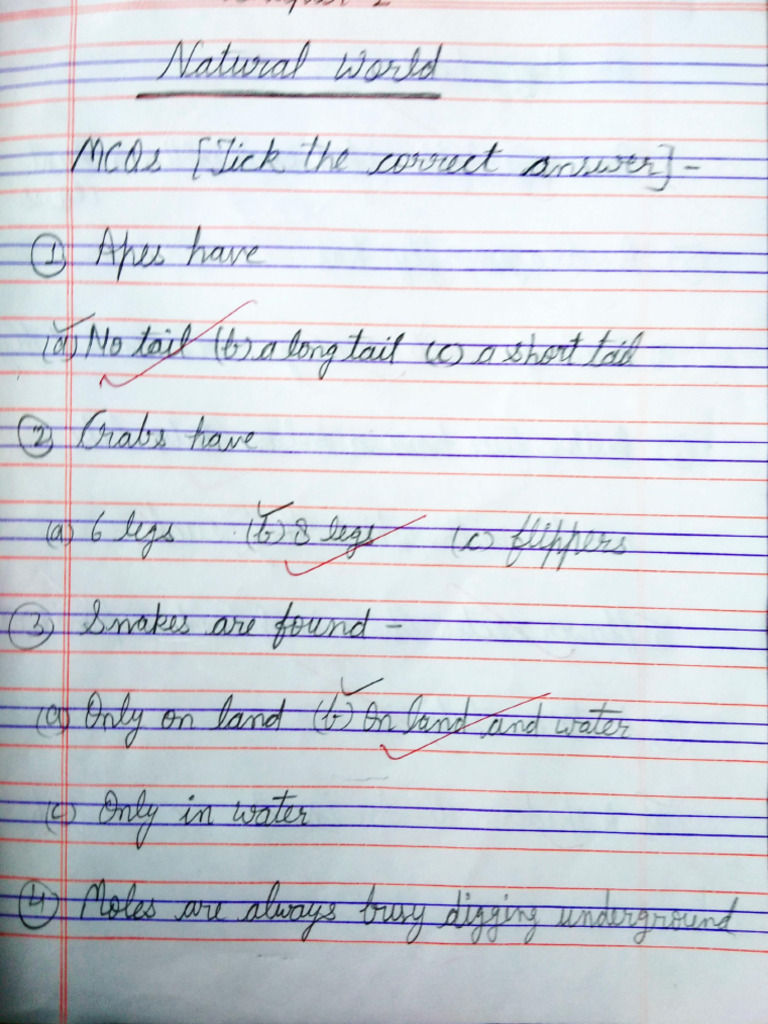 Natural World
MCQs [Tick the correct answer] -
① Apes have
(a) No tail (b) a long tail (c) a short tail
② Crabs have
(a) 6 legs (b) 8 legs (c) flippers
③ Snakes are found -
(a) Only on land (b) On land and water
(c) Only in water
④ Moles are always busy digging underground